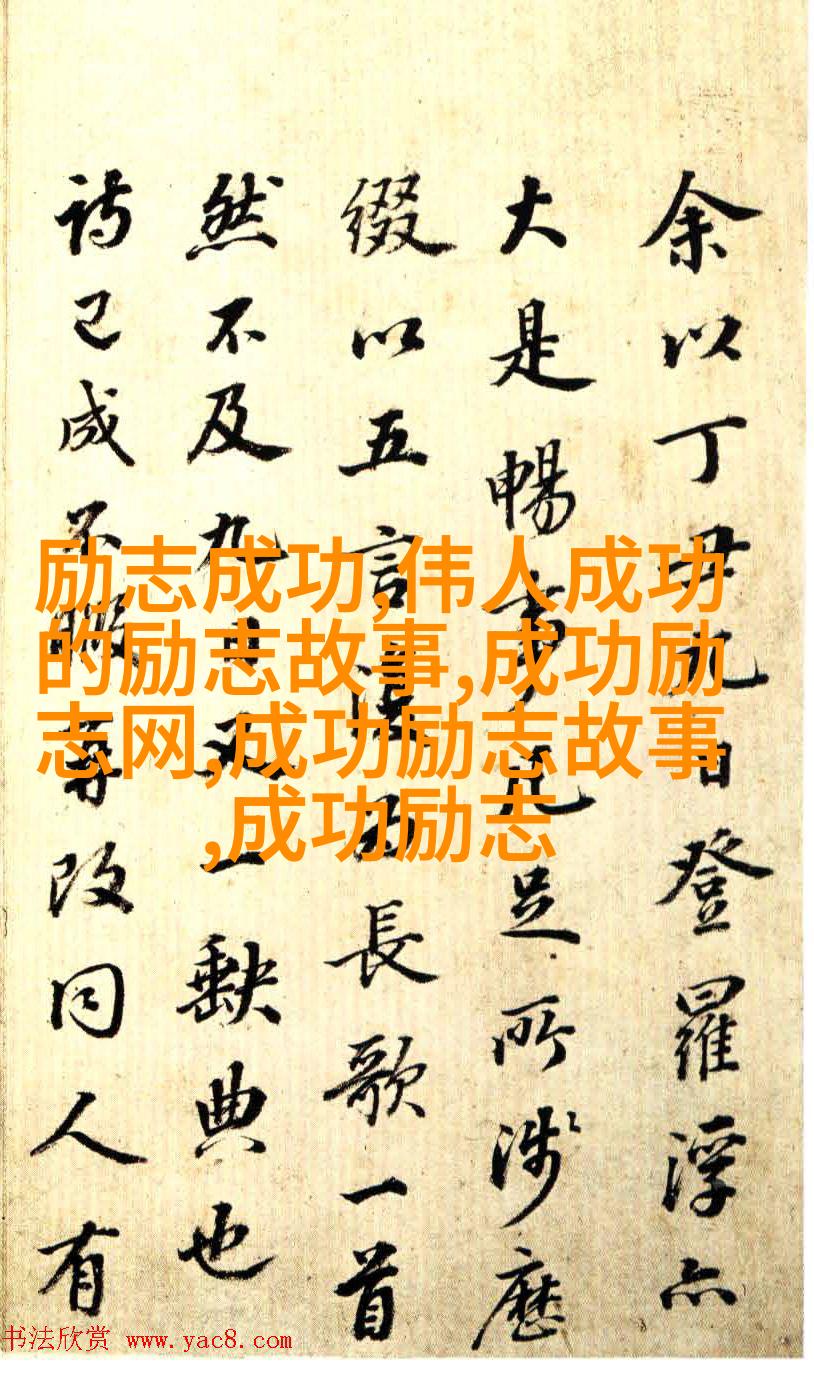 余以丁丑九日登羅浮亦
大是暢事凡足所涉歷
綴以五言淺函長歌一首
然不及九日又一缺典也
詩已成不復尋改同人有
励志成功,伟人成功
的励志故事,成功励
志网,成功励志故事
,成功励志
书法欣赏 www.yac8.com